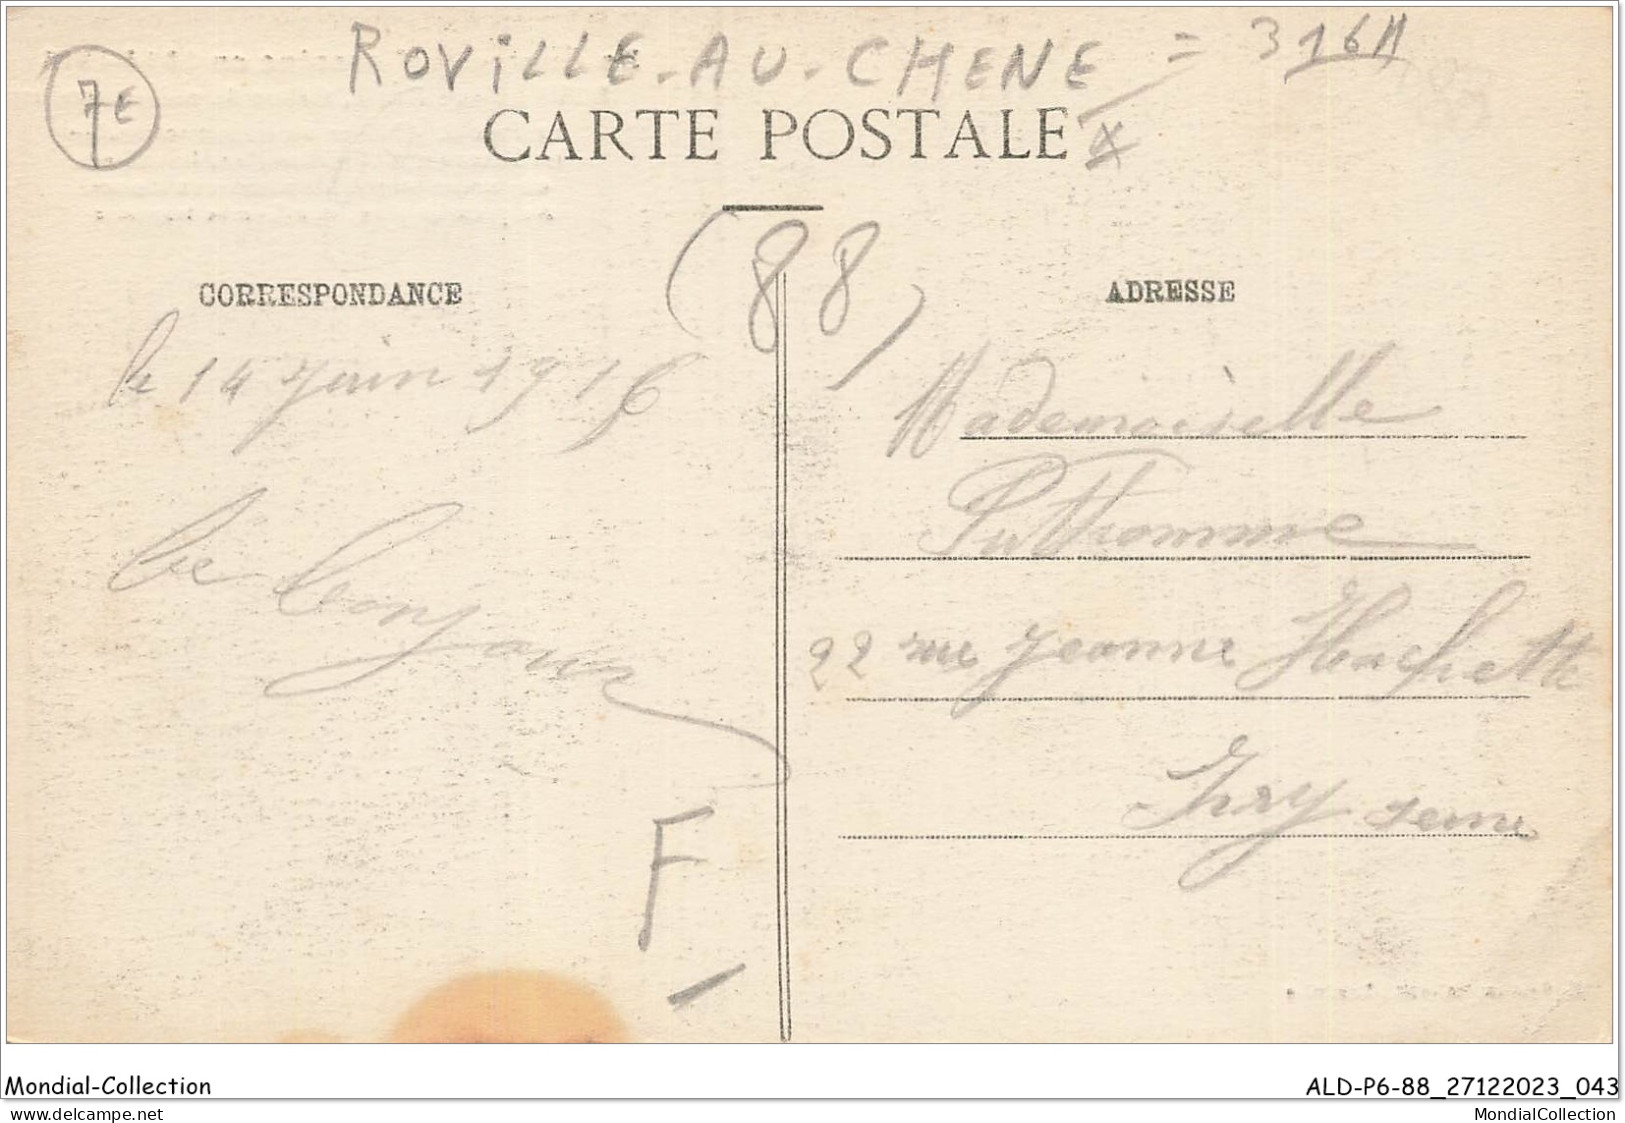 ROVILLE-AU-CHENE = 316A
7E
CARTE POSTALE
(88)
CORRESPONDANCE
le 14 juin 1916
le bonjour
F
ADRESSE
Mademoiselle
22 rue Jeanne Hachette
Ivry seine
Mondial-Collection
ALD-P6-88_27122023_043
www.delcampe.net
MondialCollection